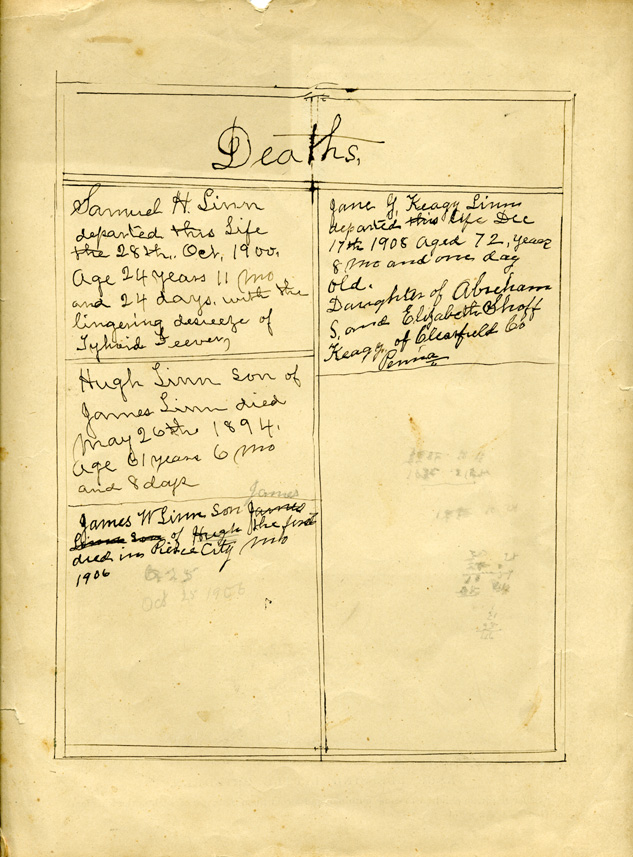 Deaths.
Samuel H. Linn
departed this Life
the 28th. Oct, 1900.
Age 24 years 11 mo
and 24 days. with the
lingering deseeze of
Typhoid Feever,
Hugh Linn son of
James Linn died
May 26th 1894.
Age 61 years 6 mo
and 8 days
James
James W Linn son James
Linn son of Hugh the first
died in Pierce City Mo
1906
Oct 25 1906
Jane G. Keagy Linn
departed this life Dec
17th 1908 aged 72, years
8 mo and one day
old.
Daughter of Abraham
S, and Elizabeth Shoff
Keagy of Clearfield Co
Penna